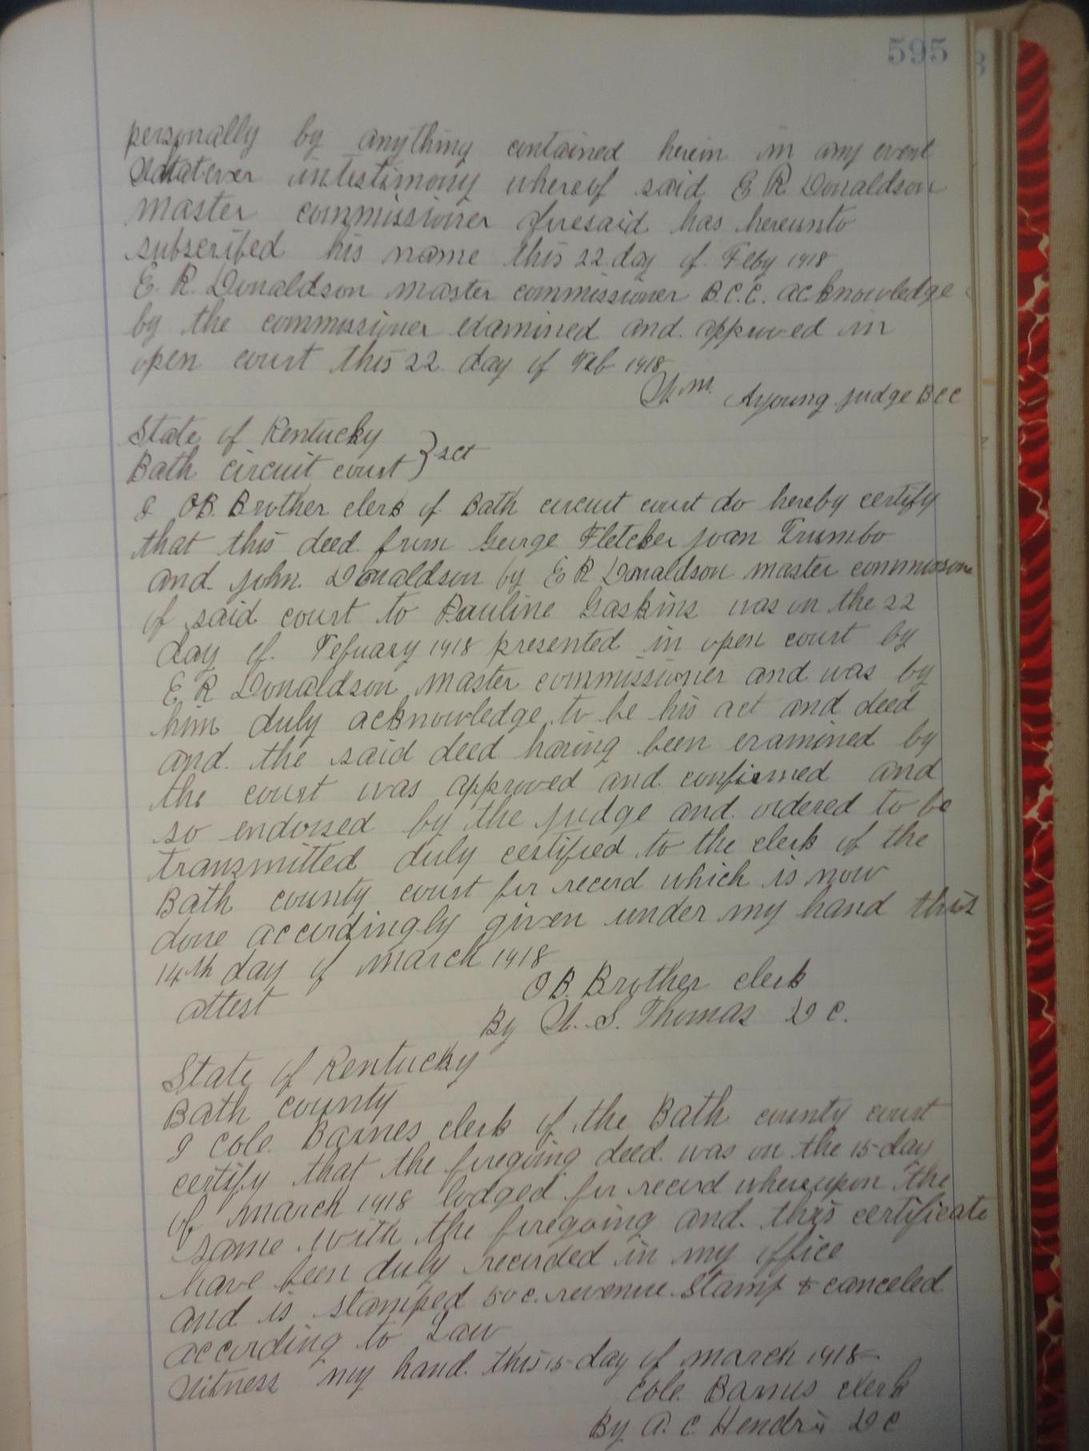 595
personally by anything contained herein in any event
Whatever intestimony whereof said E R Donaldson
master commissioner foresaid has hereunto
subscribed his name this 22 day of Feby 1918
E. R. Donaldson master commissioner B.C.C. acknowledge
by the commissioner examined and approved in
open court this 22 day of Feb 1918
Wm. A young judge BCC
State of Kentucky
Bath circuit court } sct
I OB. Brother clerk of Bath circuit court do hereby certify
that this deed from George Fletcher Joan Trumbo
and John. Donaldson by E R Donaldson master commissione
of said court to Pauline Gaskins was on the 22
day of. Febuary 1918 presented in open court by
E R Donaldson master commissioner and was by
him duly acknowledge to be his act and deed
and the said deed having been examined by
the court was approved and confirmed and
so endorsed by the judge and ordered to be
transmitted duly certified to the clerk of the
Bath county court for record which is now
done accordingly given under my hand this
14th day of march 1918
O B. Brother clerk
attest
By W. S. Thomas D C.
State of Kentucky
Bath county
I Cole. Barnes clerk of the Bath county court
certify that the foregoing deed was on the 15 day
of march 1918 lodged for record whereupon the
same with the foregoing and this certificate
have been duly recorded in my office
and is stamped 50 c. revenue Stamp & canceled
according to Law
Witness my hand. this 15 day of march 1918
Cole. Barnes clerk
By A. C. Hendrix D C